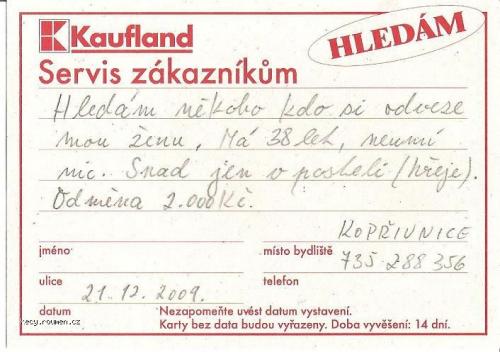 Kaufland
HLEDÁM
Servis zákazníkům
Hledám někoho kdo si odveze
mou ženu, Má 38 let, neumí
nic. Snad jen v posteli (hřeje).
Odměna 2.000 Kč.
KOPŘIVNICE
jméno místo bydliště
735 288 356
ulice telefon
21.12.2009.
datum Nezapomeňte uvést datum vystavení.
Karty bez data budou vyřazeny. Doba vyvěšení: 14 dní.
recy.roumen.cz